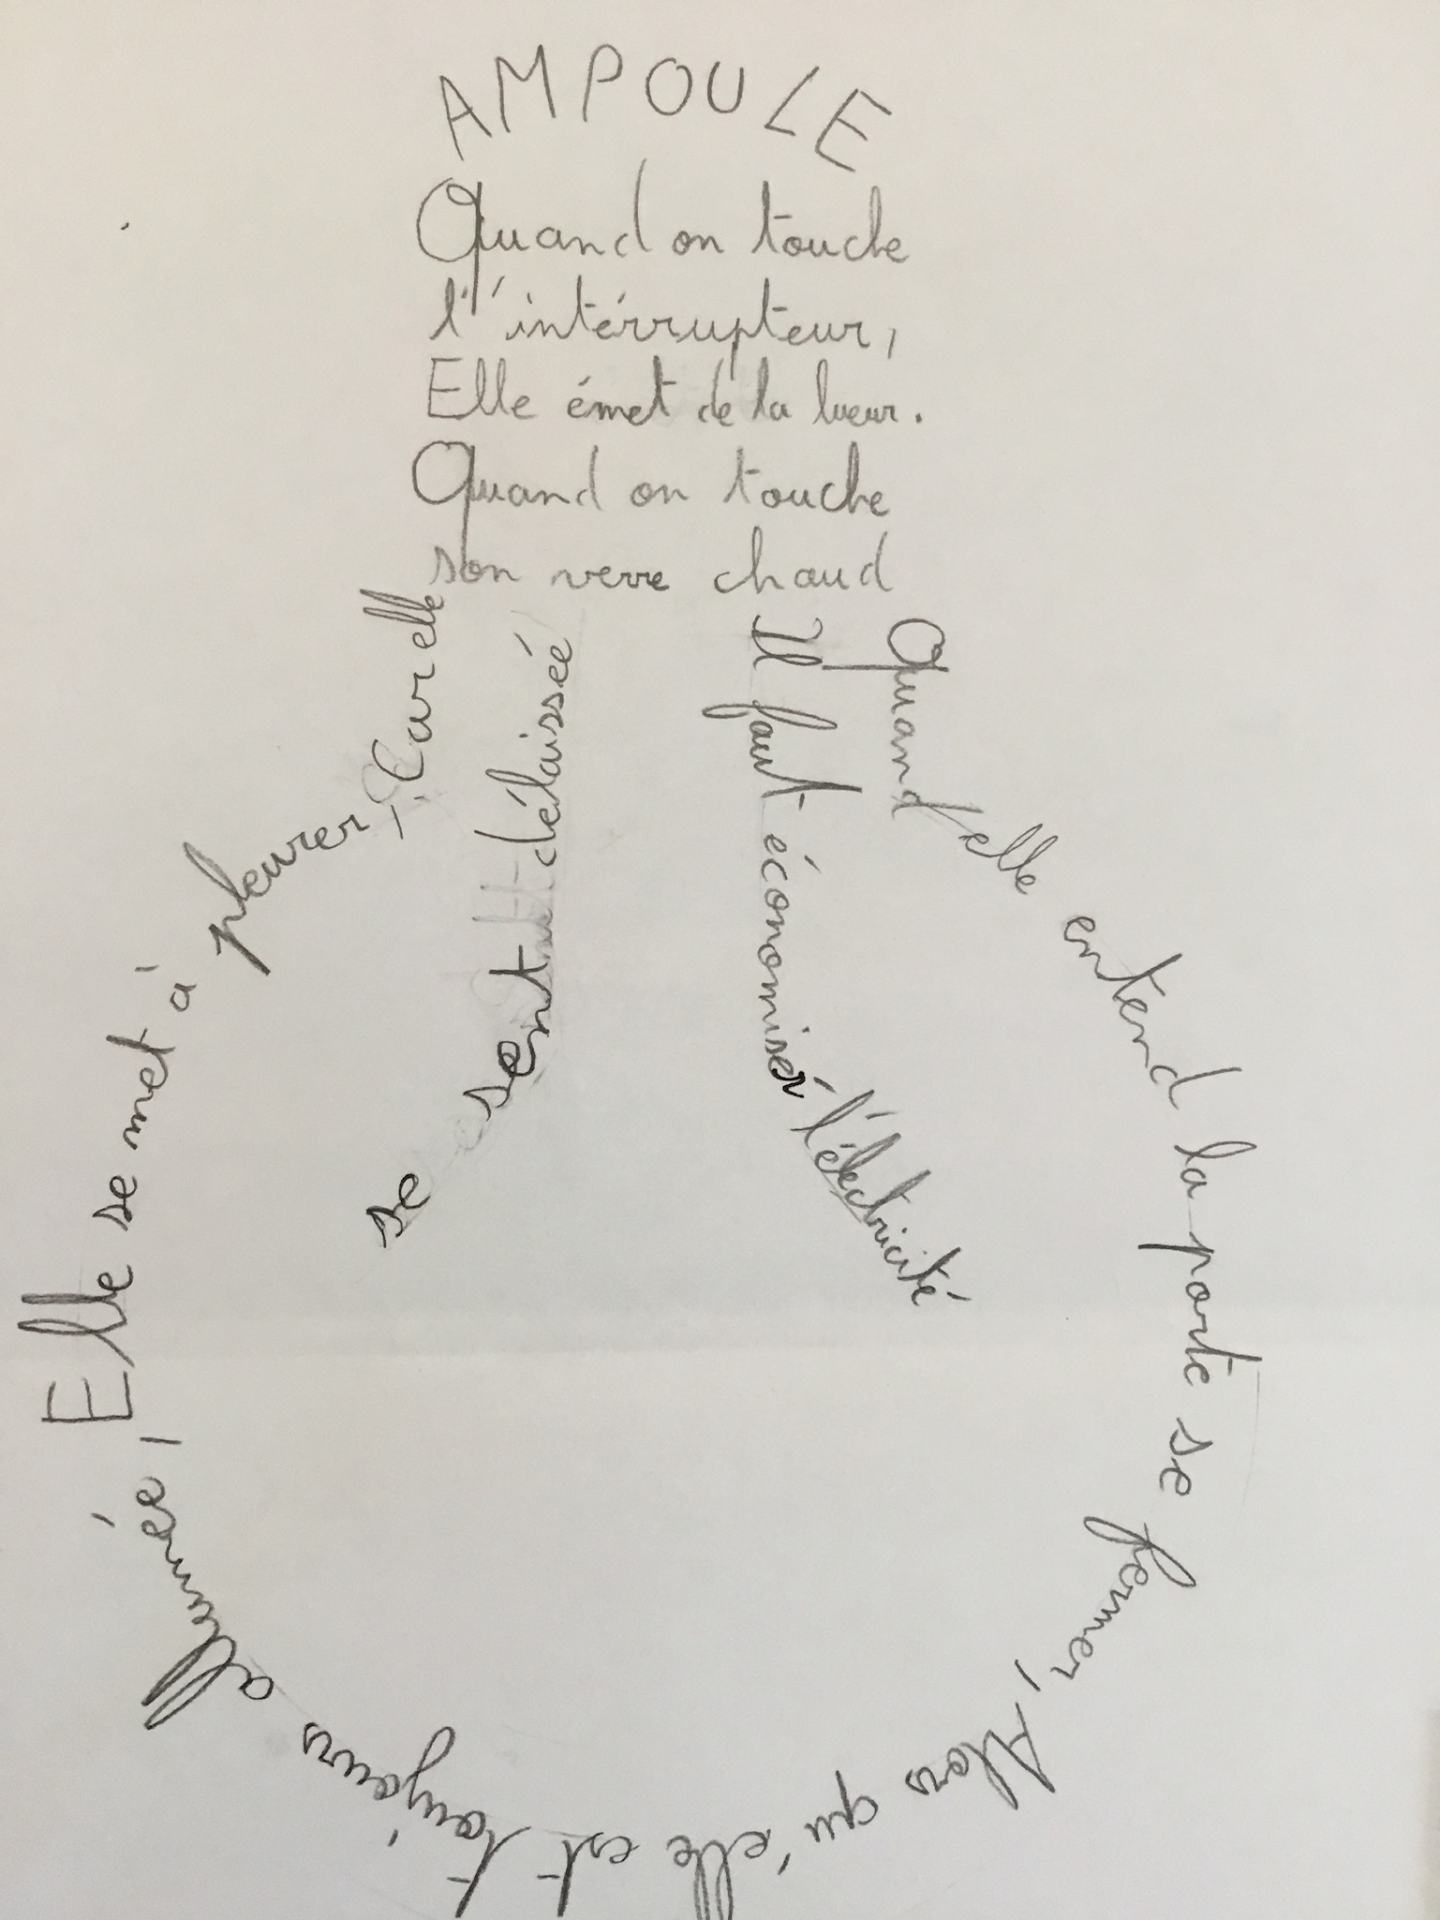 AMPOULE
Quand on touche
l'intérrupteur,
Elle émet de la lueur.
Quand on touche
son verre chaud
Quand elle entend la porte se fermer, Alors qu'elle est toujours allumée, Elle se met à pleurer, Car elle
se sent délaissée
Il faut économisér l'éléctricité